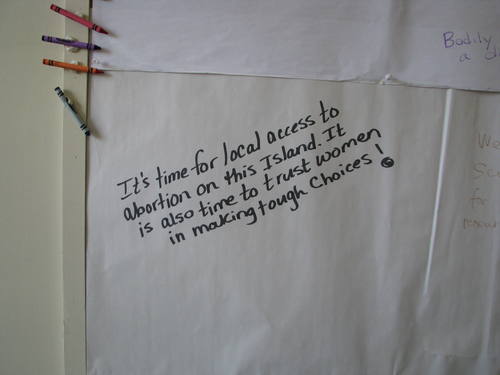 Bodily
a
It's time for local access to
abortion on this Island. It
is also time to trust women
in making tough Choices!
We
Sc
for